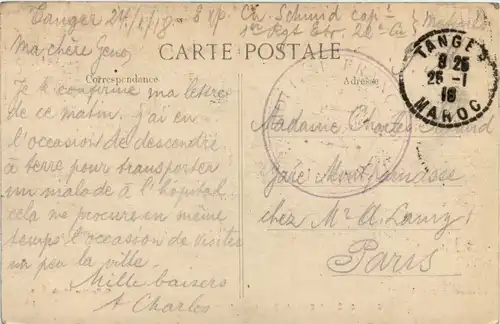 Tanger 24/1/18 8 Ch. Schmid cap
CARTE POSTALE
Correspondance
Adresse
TANGER
9 25
25 -1
18
MAROC
Ma chère
Je te confirme ma lettre
de ce matin. J'ai eu
l'occasion de descendre
à terre pour transporter
un malade à l'hopital
cela me procure en même
temps l'occasion de visiter
un peu la ville.
Mille baisers
Charles
Madame Charles Schmid
gare Montparnasse
chez Mr A.
Paris